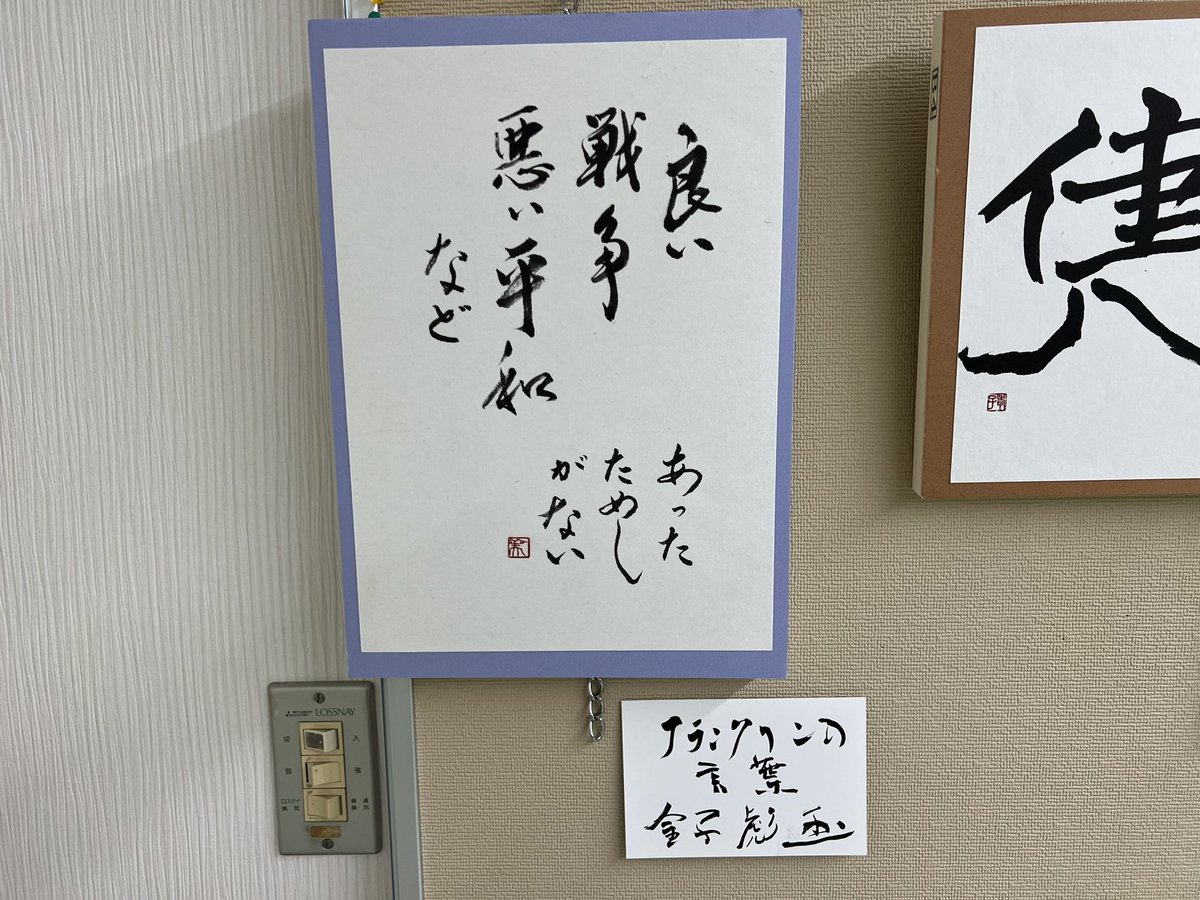 良い
戦争
悪い平和
など
あった
ためし
がない
フランクリンの
言葉
金子彪
MITSUBISHI ELECTRIC LOSSNAY
切 入
弱 強
ロスナイ換気 普通換気